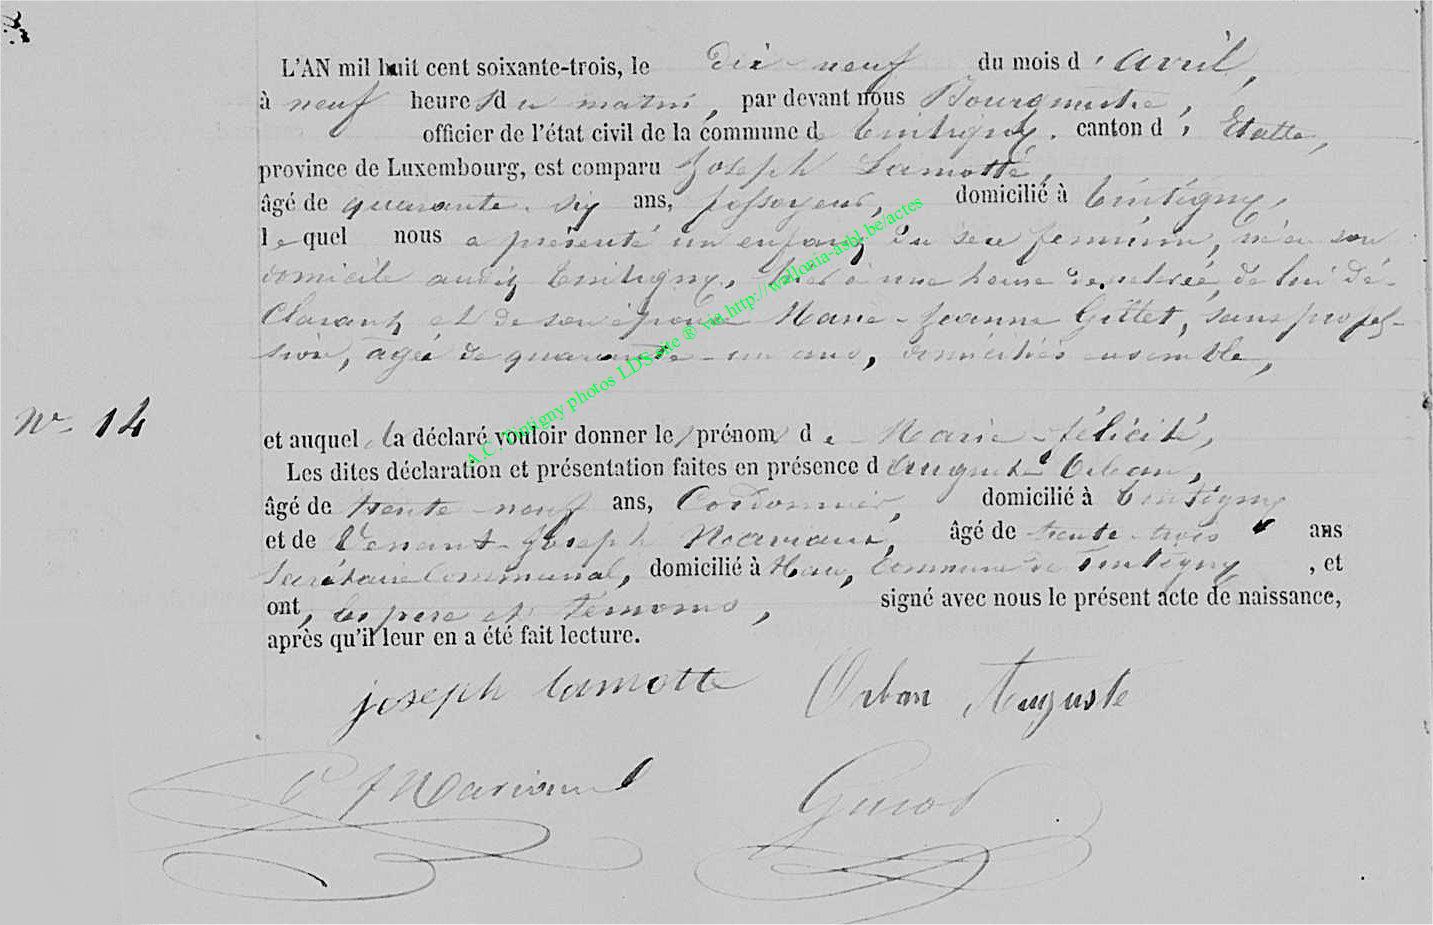 L'AN mil huit cent soixante-trois, le dix neuf du mois d'avril,
à neuf heures du matin, par devant nous Bourgmestre,
officier de l'état civil de la commune de Tintigny, canton d'Etalle,
province de Luxembourg, est comparu Joseph Lamotte,
âgé de quarante six ans, fossoyeur, domicilié à Tintigny,
lequel nous a présenté un enfant du sexe féminin, né à son
domicile audit Tintigny, hier à une heure de relevée, de lui dé-
clarant et de son épouse Marie-Jeanne Gillet, sans profes-
sion, âgée de quarante-un ans, domiciliés ensemble,
N° 14
et auquel il a déclaré vouloir donner le prénom de Marie-félicité,
Les dites déclaration et présentation faites en présence d'Auguste Orban,
âgé de trente-neuf ans, Cordonnier, domicilié à Tintigny
et de Venant-Joseph Maviaux, âgé de trente-trois ans
Secrétaire Communal, domicilié à Han, Commune de Tintigny, et
ont, les père et témoins, signé avec nous le présent acte de naissance,
après qu'il leur en a été fait lecture.
joseph lamotte Orban Auguste
A.C. Tintigny photos LDS site ® via http://wallonia-asbl.be/actes